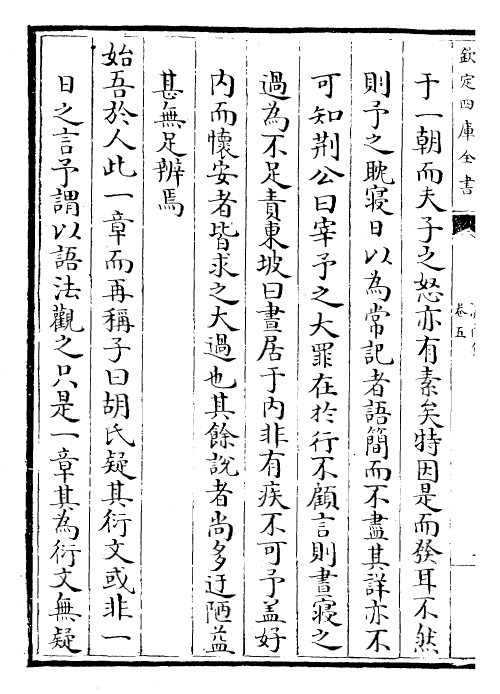 欽定四庫全書
卷五
于一朝而夫子之怒亦有素矣特因是而發耳不然
則予之耽寢日以為常記者語簡而不盡其詳亦不
可知荆公曰宰予之大罪在於行不顧言則晝寢之
過為不足責東坡曰晝居于内非有疾不可予盖好
内而懷安者皆求之大過也其餘說者尚多迂陋益
甚無足辨焉
始吾於人此一章而再稱子曰胡氏疑其衍文或非一
日之言予謂以語法觀之只是一章其為衍文無疑